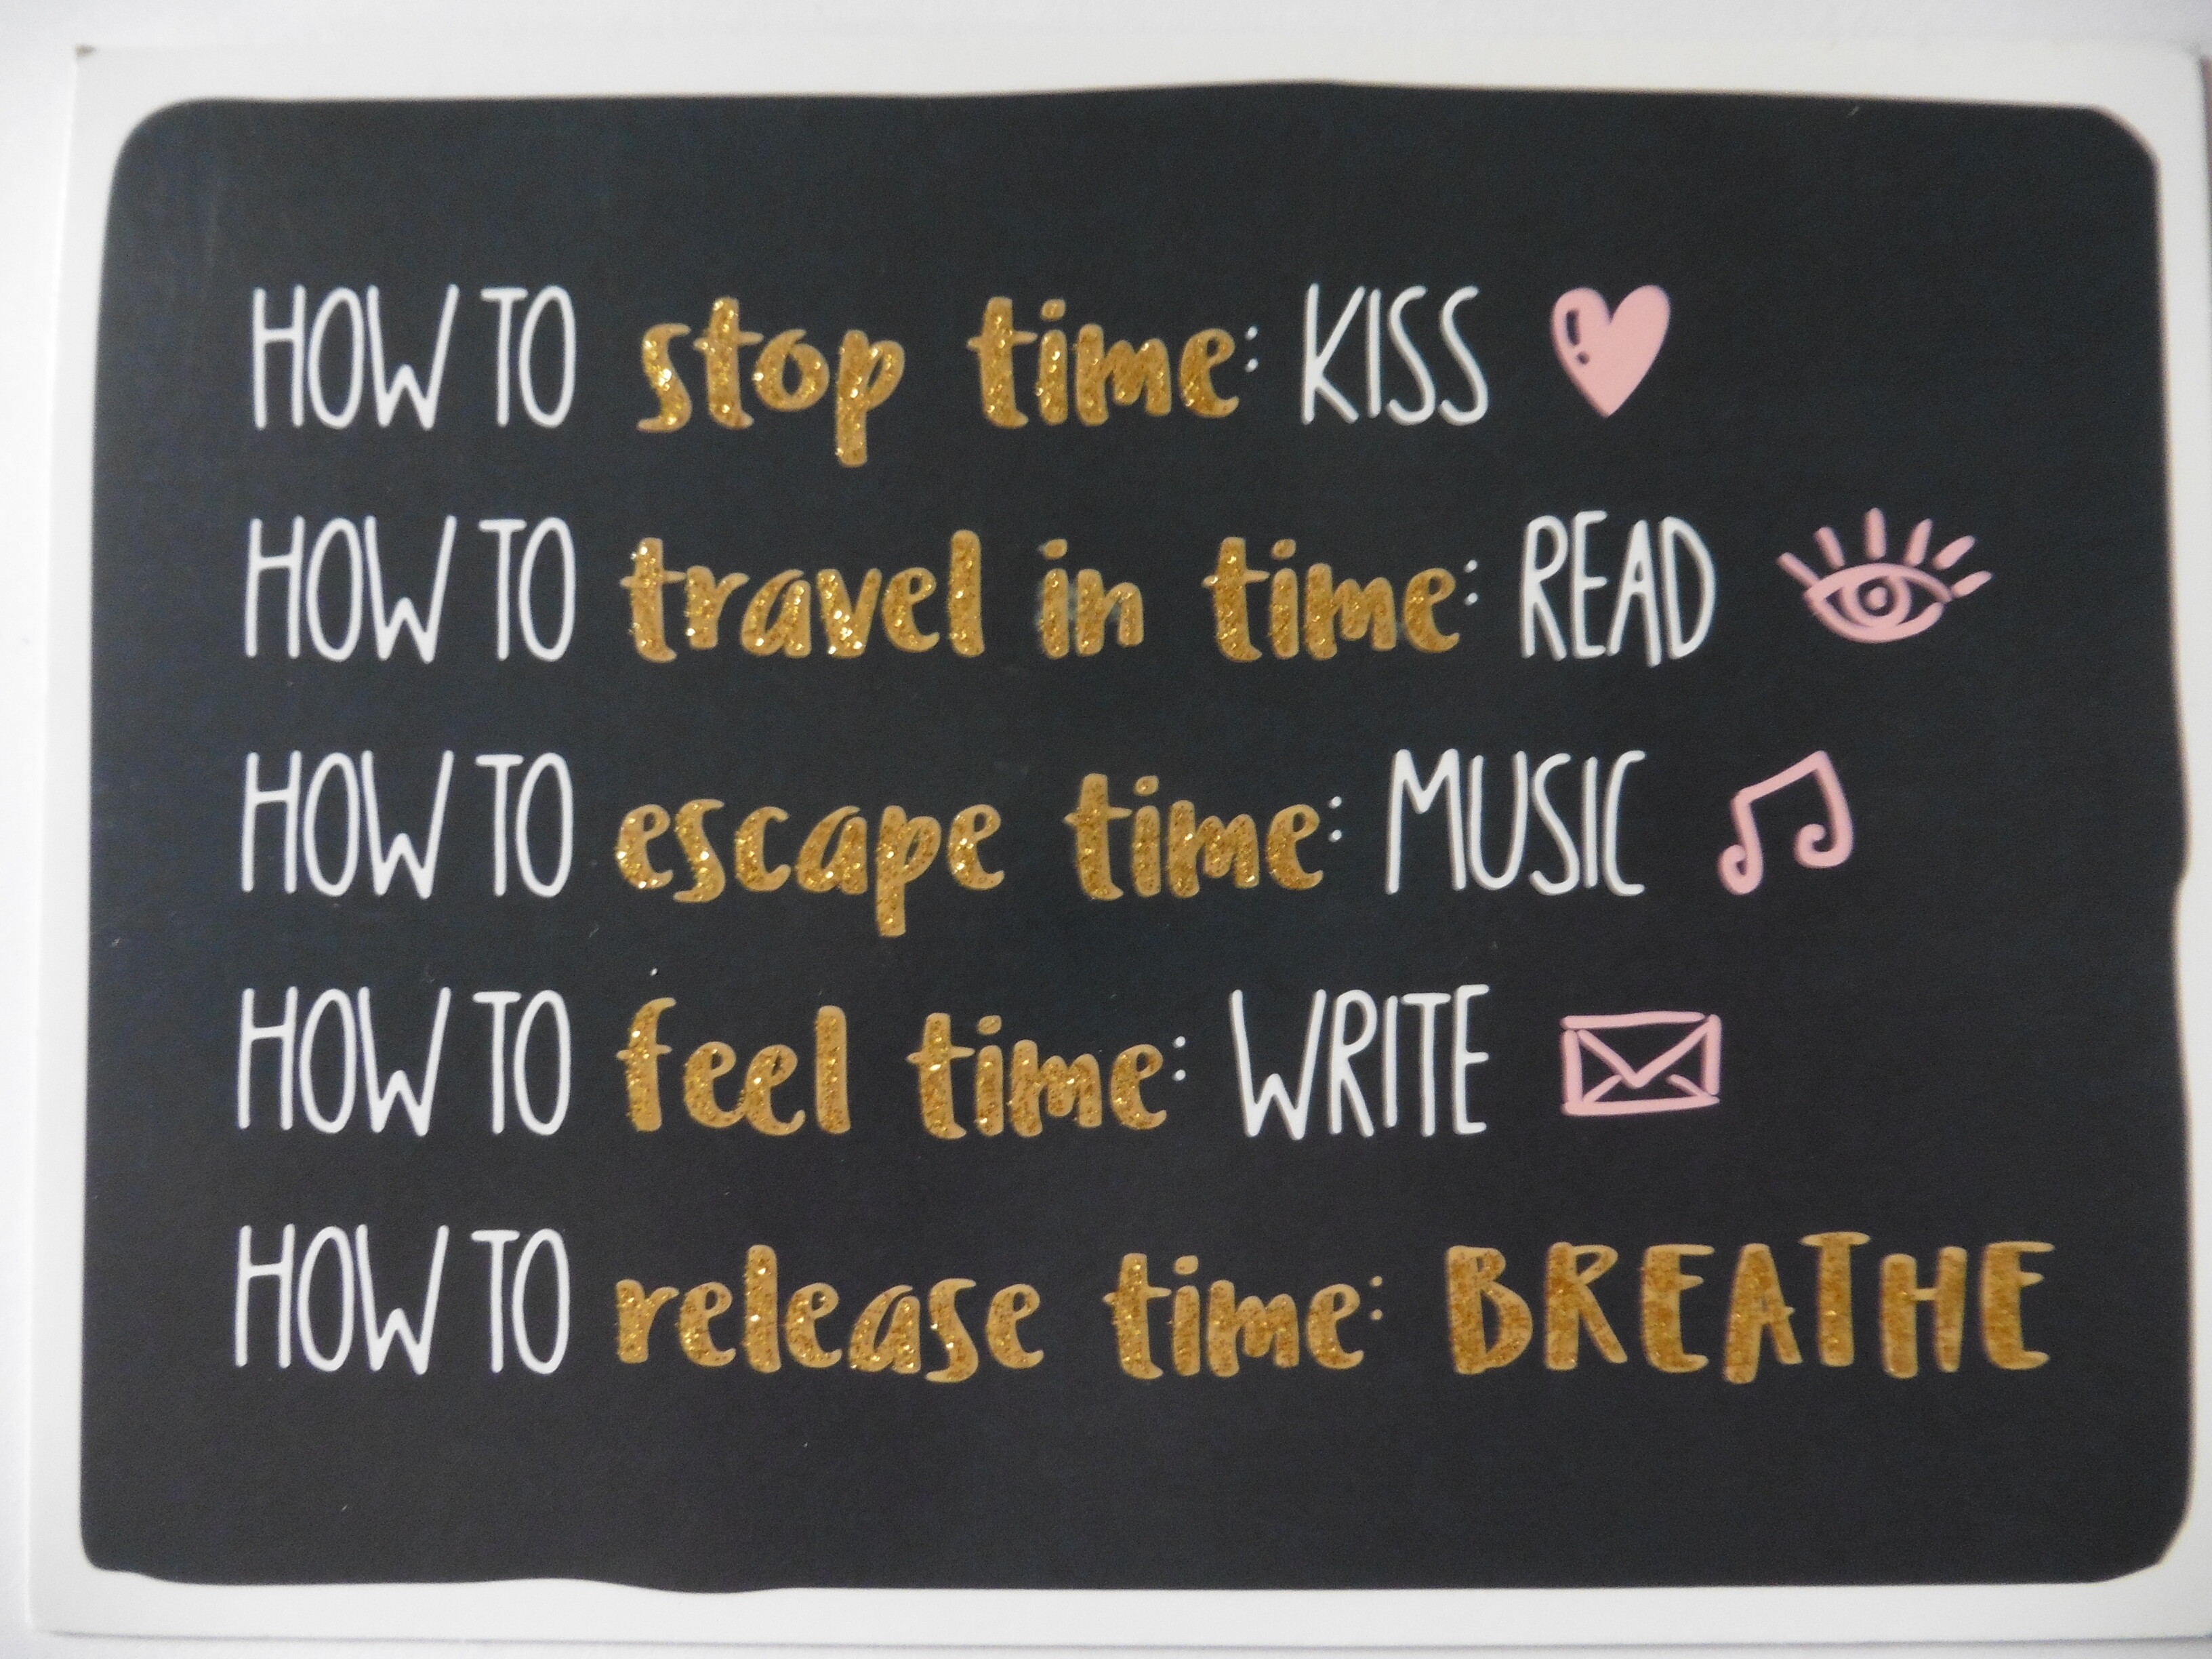 HOW TO stop time: KISS
HOW TO travel in time: READ
HOW TO escape time: MUSIC
HOW TO feel time: WRITE
HOW TO release time: BREATHE